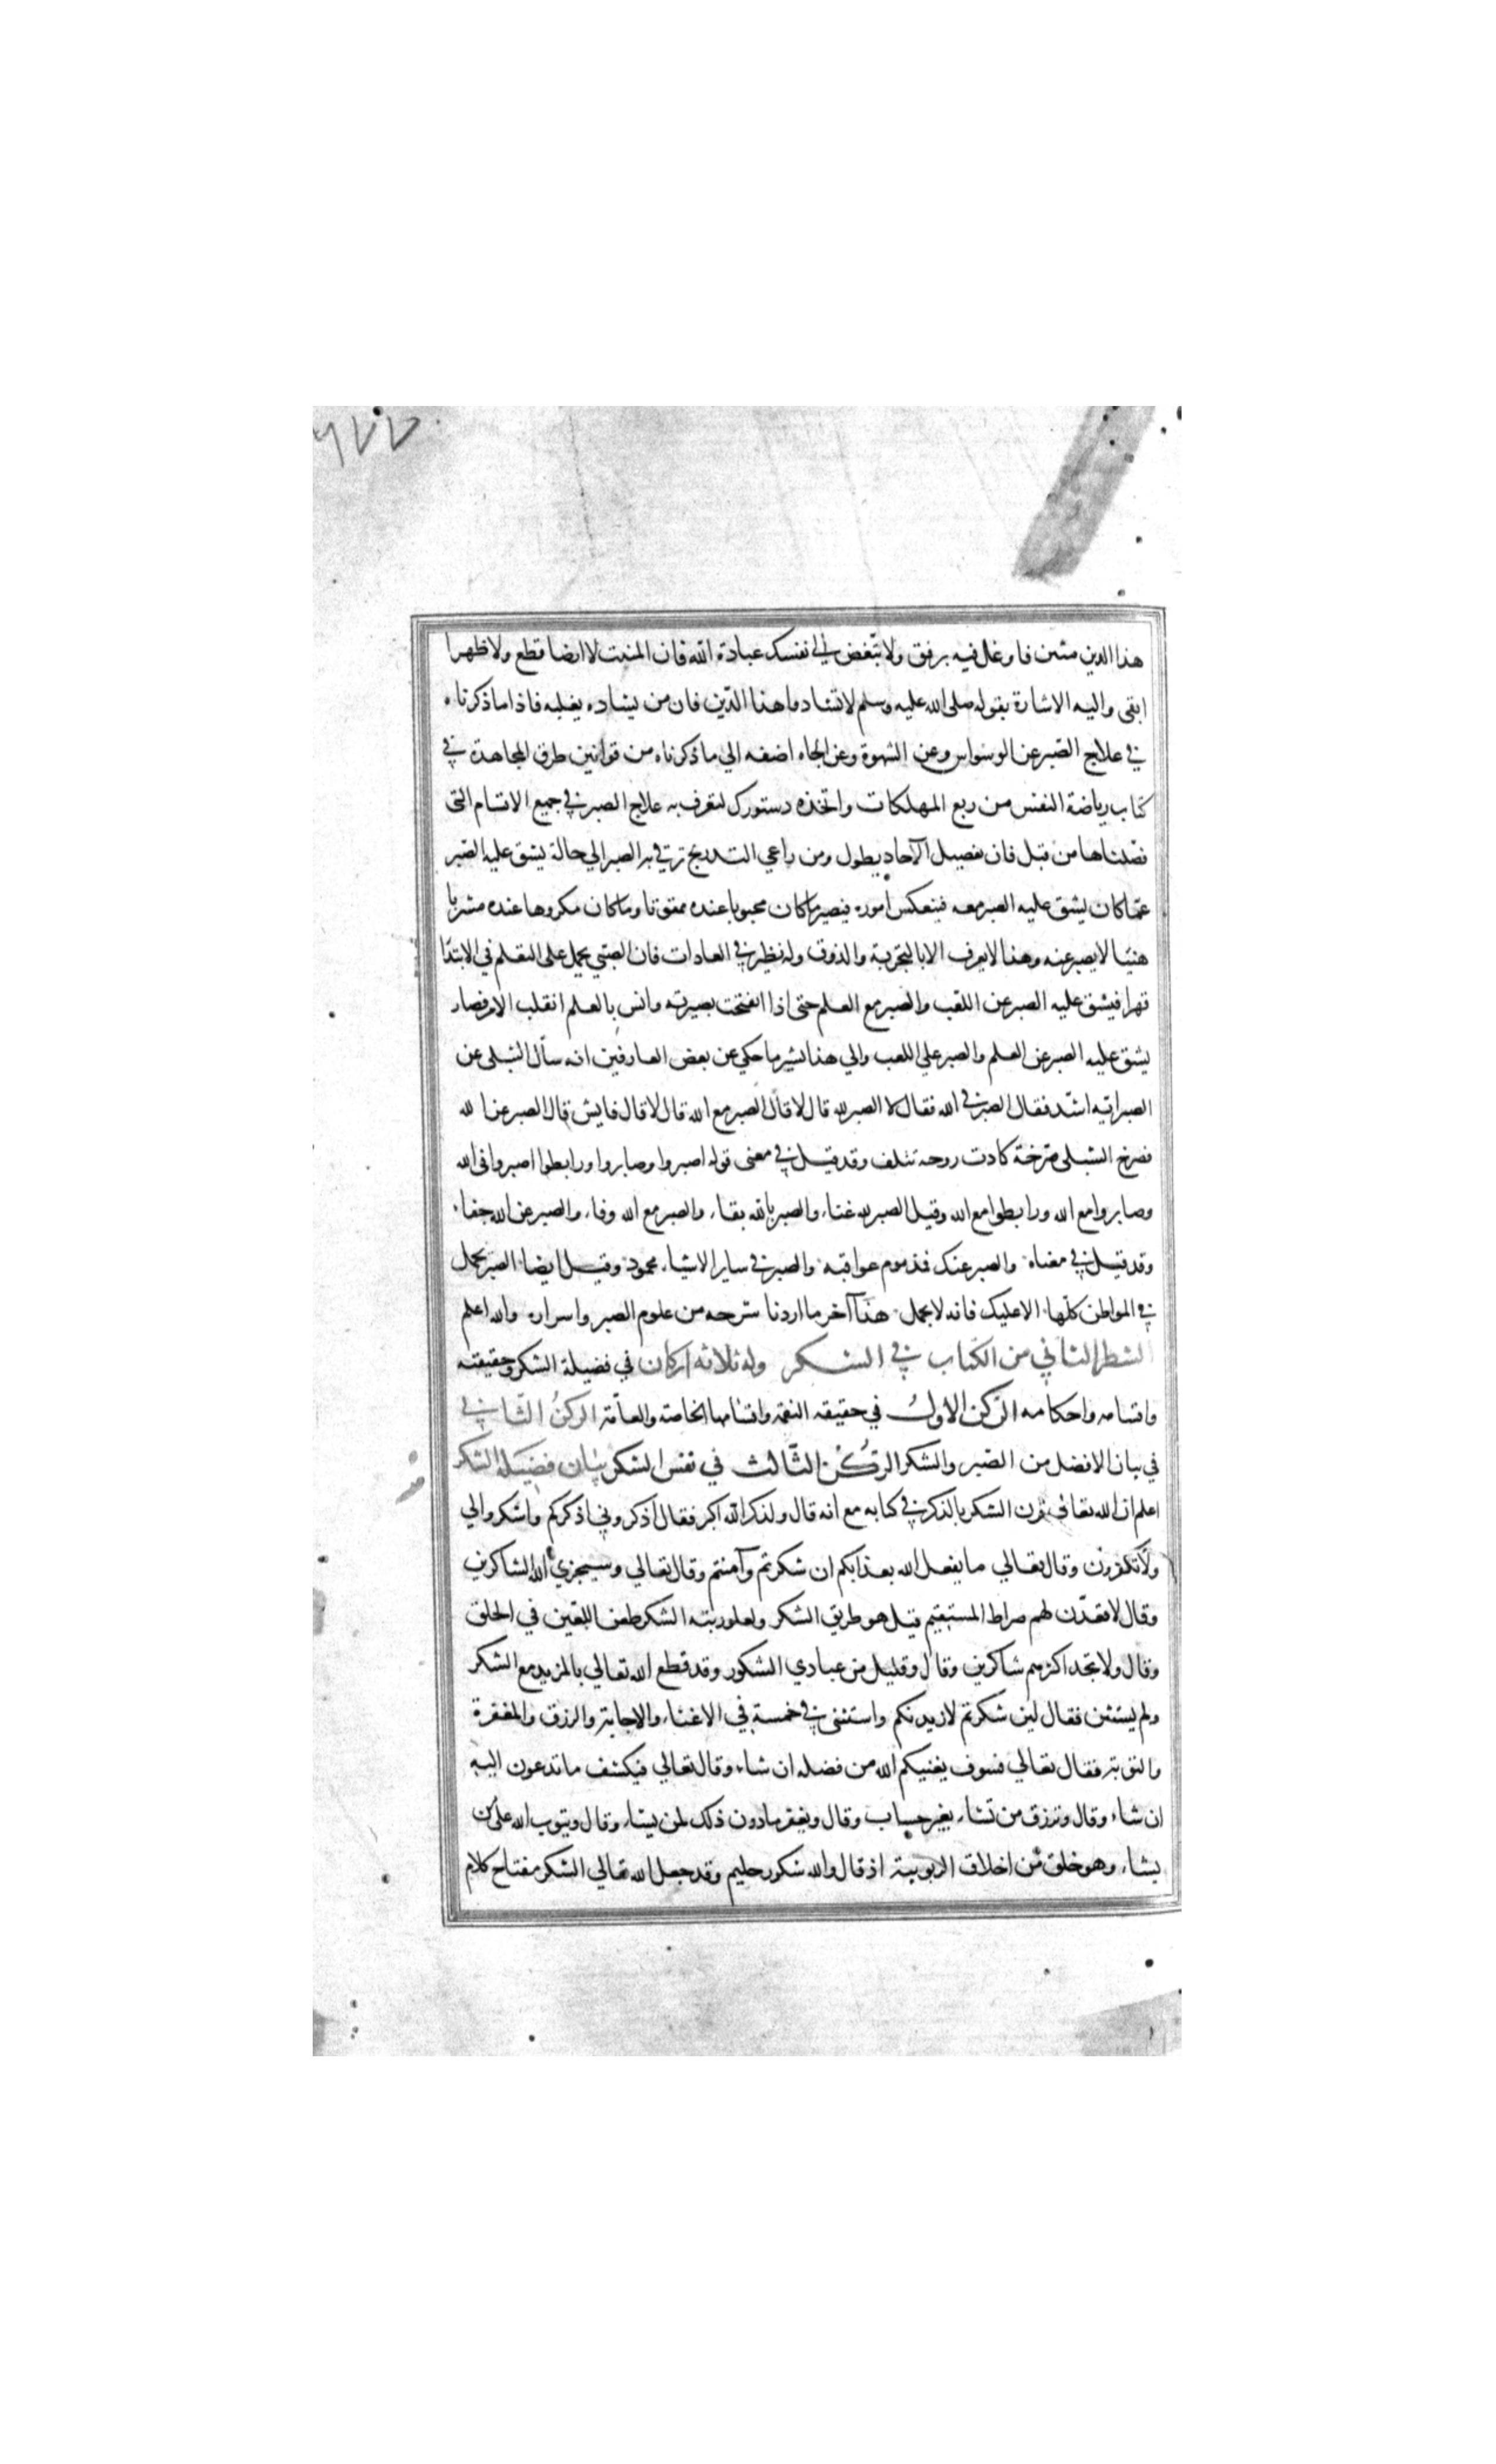 ٦٧٧
هذا الدين متين فاوغل فيه برفق ولا تبغض الى نفسك عبادة الله فان المنبت لا ارضا قطع ولا ظهرا
ابقى واليه الاشارة بقوله صلى الله عليه وسلم لا تشادوا هذا الدّين فان من يشاده يغلبه فاذا ما ذكرناه
في علاج الصّبر عن الوسواس وعن الشهوة وعن الجاه اضفه الي ما ذكرناه من قوانين طرق المجاهدة في
كتاب رياضة النفس من ربع المهلكات واتخذه دستورك لتعرف به علاج الصبر في جميع الاقسام التى
فصّلناها من قبل فان تفصيل الآحاد يطول ومن راعي التدريج ترقي به الصبر الي حالة يشق عليه الصّبر
عمّا كان يشق عليه الصبر معه فينعكس اموره فيصير ما كان محبوبا عنده ممقوتا وما كان مكروها عنده مشربا
هنيّا لا يصبر عنه وهذا لا يعرف الا بالتجربة والذوق وله نظير في العادات فان الصّبي يحمل على التعلم في الابتدا
قهرا فيشق عليه الصبر عن اللعب والصبر مع العلم حتى اذا انفتحت بصيرته وانس بالعلم انقلب الامر فصار
يشق عليه الصبر عن العلم والصبر علي اللعب والي هذا يشير ما حكي عن بعض العارفين انه سأل الشبلى عن
الصبر ايّه اشدّ فقال الصبر في الله فقال لا الصبر لله قال لا قال الصبر مع الله قال لا قال فايش قال الصبر عن الله
فصرخ الشبلى صرخة كادت روحه تتلف وقد قيل في معنى قوله اصبروا وصابروا ورابطوا اصبروا فى الله
وصابروا مع الله ورابطوا مع الله وقيل الصبر لله غناء والصبر بالله بقاء والصبر مع الله وفاء والصبر عن الله جفاء
وقد قيل في معناه والصبر عنك فذموم عواقبه والصبر في ساير الاشياء محمود وقيل ايضا الصبر يجمل
في المواطن كلّها الا عليك فانه لا يجمل هذا آخر ما اردنا شرحه من علوم الصبر واسراره والله اعلم
الشطر الثاني من الكتاب في الشكر وله ثلاثه اركان في فضيلة الشكر وحقيقته
واقسامه واحكامه الرّكن الاول في حقيقه النعمة واقسامها الخاصة والعامّة الركن الثّاني في
في بيان الافضل من الصّبر والشكر الركن الثّالث في نفس الشكر بيان فضيلة الشكر
اعلم ان الله تعالى قرن الشكر بالذكر في كتابه مع انه قال ولذكر الله اكبر فقال اذكروني اذكركم واشكروا لي
ولا تكفرون وقال تعالي ما يفعل الله بعذابكم ان شكرتم وآمنتم وقال تعالي وسيجزي الله الشاكرين
وقال لاقعدّن لهم صراط المستقيم قيل هو طريق الشكر ولعلو رتبته الشكر طعن اللعين في الخلق
وقال ولا تجد اكثرهم شاكرين وقال وقليل من عبادي الشكور وقد قطع الله تعالي بالمزيد مع الشكر
ولم يستثن فقال لين شكرتم لازيدنكم واستثنى في خمسة في الاغناء والاجابة والرزق والمغفرة
والتوبة فقال تعالي فسوف يغنيكم الله من فضله ان شاء وقال تعالي فيكشف ما تدعون اليه
ان شاء وقال وترزق من تشاء بغير حساب وقال ويغفر ما دون ذلك لمن يشاء وقال ويتوب الله على من
يشاء وهو خلق من اخلاق الربوبية اذ قال والله شكور حليم وقد جعل الله تعالي الشكر مفتاح كلام